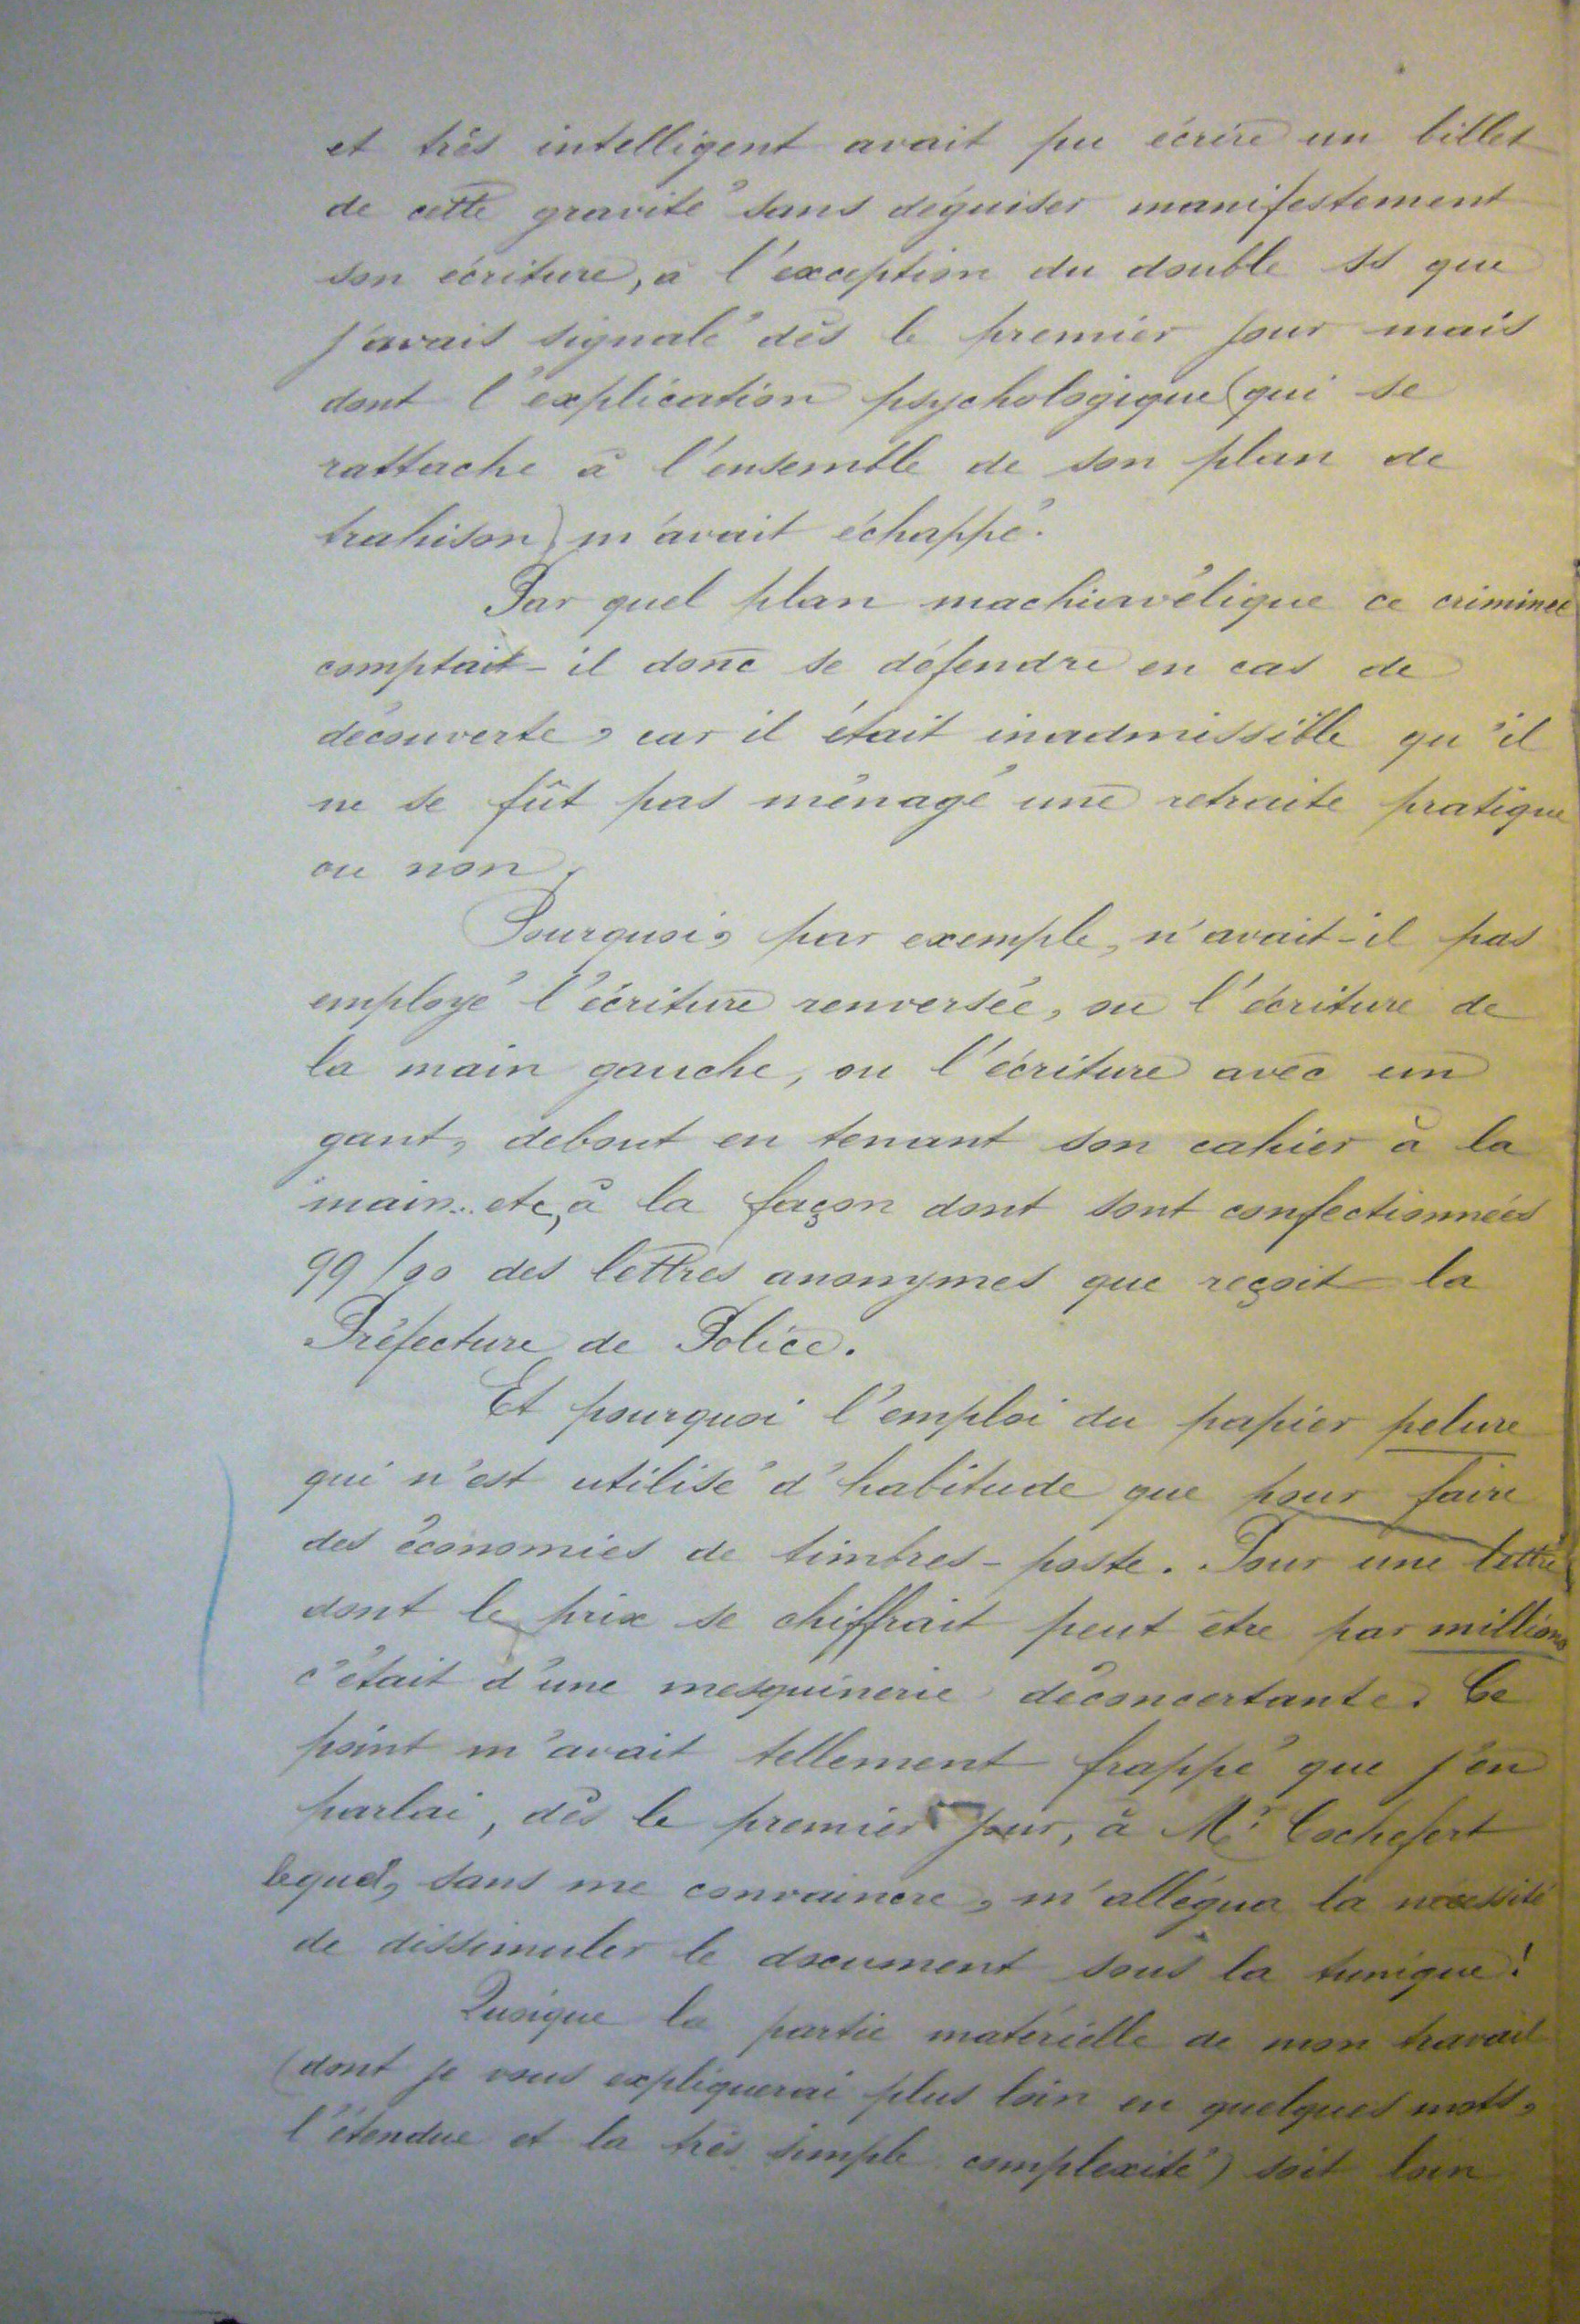 et très intelligent avait pu écrire un billet
de cette gravité sans déguiser manifestement
son écriture, à l'exception du double ss que
j'avais signalé dès le premier jour mais
dont l'explication psychologique (qui se
rattache à l'ensemble de son plan de
trahison) m'avait échappé.
Par quel plan machiavélique ce criminel
comptait-il donc se défendre en cas de
découverte, car il était inadmissible qu'il
ne se fût pas ménagé une retraite pratique
ou non.
Pourquoi, par exemple, n'avait-il pas
employé l'écriture renversée, ou l'écriture de
la main gauche, ou l'écriture avec un
gant, debout en tenant son cahier à la
main.. etc, à la façon dont sont confectionnées
99/00 des lettres anonymes que reçoit la
Préfecture de Police.
Et pourquoi l'emploi du papier pelure
qui n'est utilisé d'habitude que pour faire
des économies de timbres-poste. Pour une lettre
dont le prix se chiffrait peut être par millions
c'était d'une mesquinerie déconcertante. Ce
point m'avait tellement frappé que j'en
parlai, dès le premier jour, à Mr Cochefert
lequel, sans me convaincre, m'allégua la nécessité
de dissimuler le document sous la tunique!
Quoique la partie matérielle de mon travail
(dont je vous expliquerai plus loin en quelques mots,
l'étendue et la très simple complexité) soit loin